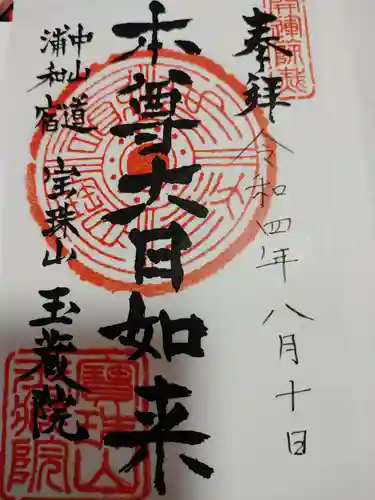 奉拝
令和四年八月十日
本尊大日如来
中山道
浦和宿
宝珠山
玉蔵院
寶珠山